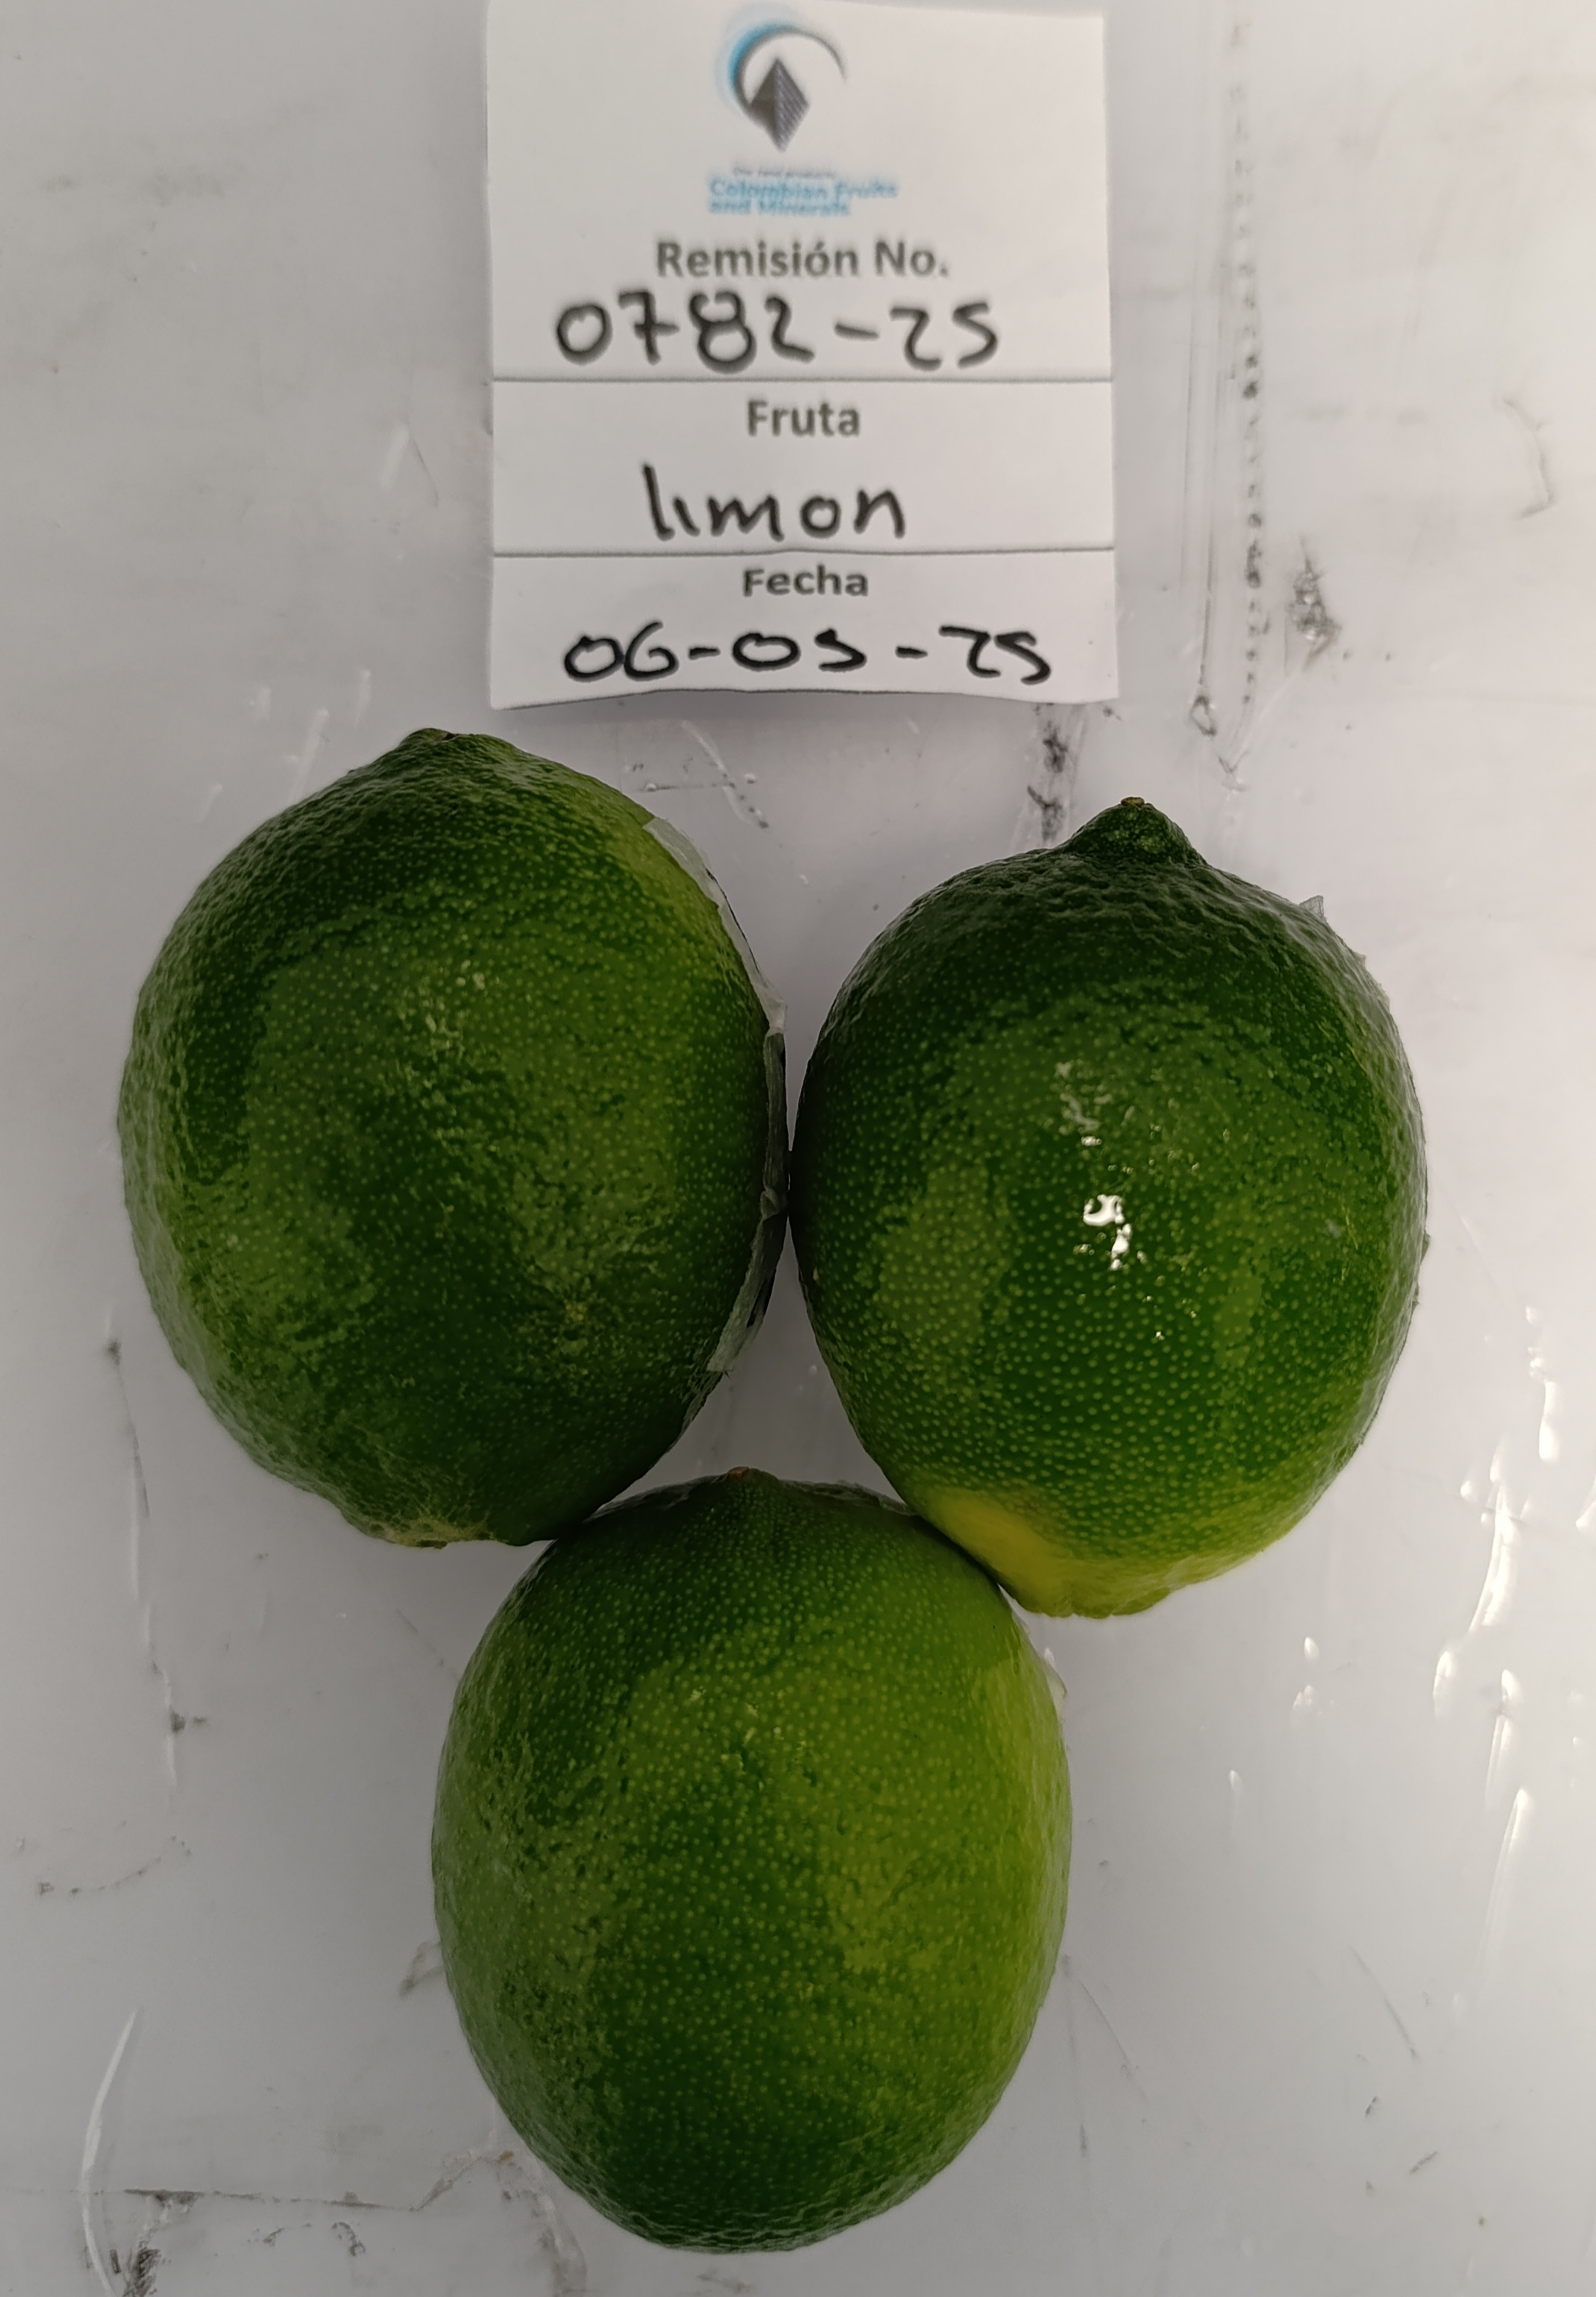 Colombian Fruits
and Minerals
Remisión No.
0782-25
Fruta
limon
Fecha
06-05-25